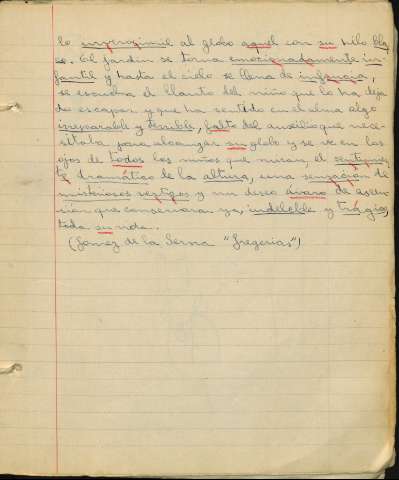 lo inverosímil al globo aquel con su hilo blan
co. El jardín se torna emocionadamente in-
fantil y hasta el cielo se llena de infancia,
se escucha el llanto del niño que lo ha deja
do escapar y que ha sentido en el alma algo
irreparable y terrible, falto del auxilio que nece-
sitaba para alcanzar su globo y se ve en los
ojos de todos los niños que miran, el
lo dramático de la altura, una sensación de
misteriosos vertigos y un deseo avaro de ascen
sión que conservara ya, indeleble y trágica,
toda su vida.
(Gomez de la Serna "Gregerias")